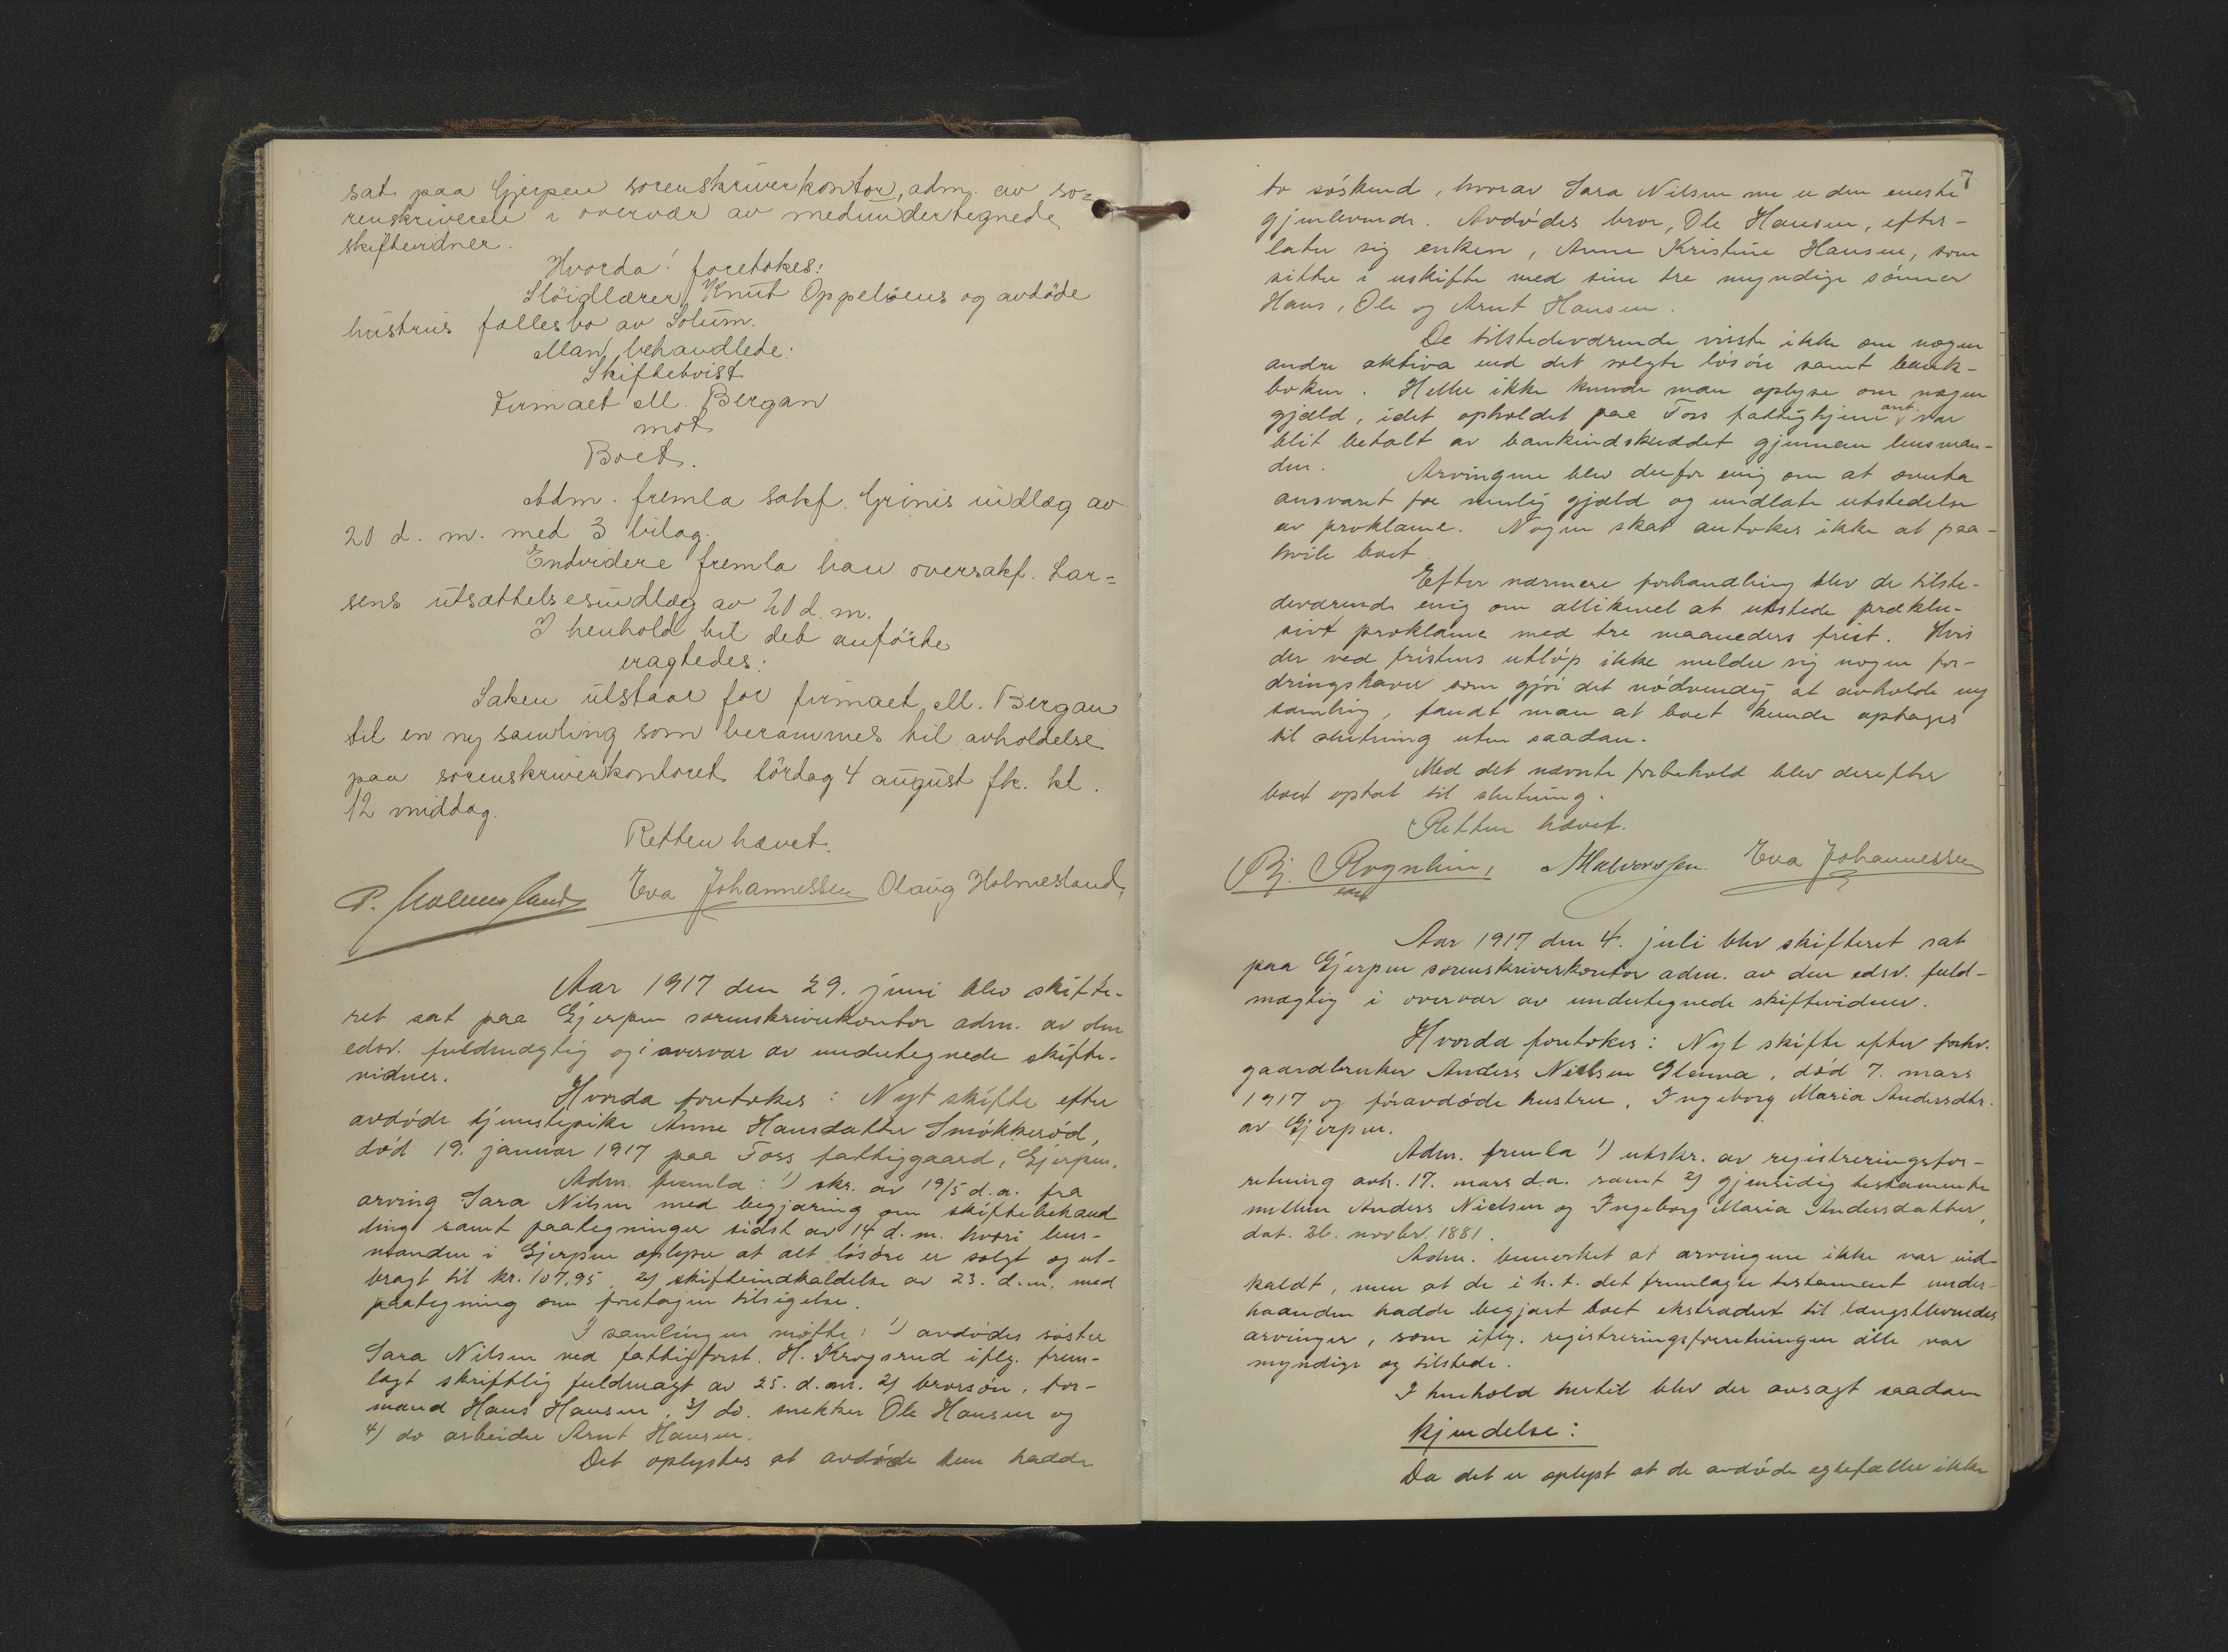 sat paa Gjerpen sorenskriverkontor, adm. av so=
renskriveren i overvær av medundertegnede
skiftevidner.
Hvorda foretokes:
Slöidlærer Knut Oppelöens og avdöde
hustrus fællesbo av Solum.
Man behandlede:
Skiftetvist
Firmaet M. Bergan
mot
Boet.
Adm. fremla sakf. Grinis indlæg av
20 d. m. med 3 bilag.
Endvidere fremla han oversakf. Lar=
sens utsættelsesindlæg av 20 d. m.
I henhold til det anförte
eragtedes:
Saken utstaar for firmaet M. Bergan
til en ny samling som berammes til avholdelse
paa sorenskriverkontoret lördag 4 august fk. kl.
12 middag.
Retten hævet.
P. Holmesland Eva Johannessen Olaug Holmesland,
Aar 1917 den 29. juni blev skifte-
ret sat paa Gjerpen sorenskriverkontor adm. av den
edsv. fuldmægtig og i overvær av undertegnede skifte-
vidner.
Hvorda foretokes: Nyt skifte efter
avdöde tjenestepike Anne Hansdatter Smökkeröd,
död 19. januar 1917 paa Foss fattiggaard, Gjerpen.
Adm. fremla: 1) skr. av 19/5 d.a. fra
arving Sara Nilsen med begjæring om skiftebehand
ling samt paategninger sidst av 14 d. m. hvori lens-
manden i Gjerpen oplyser at alt lösöre er solgt og ut-
bragt til kr. 107,95, 2) skifteindkaldelse av 23. d.m. med
paategning om foretagen tilsigelse.
I samlingen mötte: 1) avdödes söster
Sara Nilsen ved fattigforst. H. Krogsrud iflg. frem-
lagt skriftlig fuldmagt av 25. d.m. 2) brorsön, for-
mand Hans Hansen, 3) do. snekker Ole Hansen og
4) do arbeider Arnt Hansen.
Det oplystes at avdöde kun hadde
7
to söskend, hvorav Sara Nilsen nu er den eneste
gjenlevende. Avdödes bror, Ole Hansen, efter-
later sig enken, Anne Kristine Hansen, som
sitter i uskifte med sine tre myndige sönner
Hans, Ole og Arnt Hansen.
De tilstedeværende visste ikke om nogen
andre aktiva end det solgte lösöre samt bank-
boken. Heller ikke kunde man oplyse om nogen
gjæld, idet opholdet paa Foss fattighjem ant. var
blit betalt av bankindskuddet gjennem lensman-
den.
Arvingene blev derfor enig om at overta
ansvaret for mulig gjæld og undlate utstedelse
av proklama. Nogen skat antokes ikke at paa-
hvile boet.
Efter nærmere forhandling blev de tilste-
deværende enig om allikevel at utstede præklu-
sivt proklama med tre maaneders frist. Hvis
der ved fristens utlöp ikke melder sig nogen for-
dringshaver som gjör det nödvendig at avholde ny
samling, fandt man at boet kunde optages
til slutning uten saadan.
Med det nævnte forbehold blev derefter
boet optat til slutning.
Retten hævet.
Bj. Rognlien, AHalvorsen. Eva Johannessen
edsv
Aar 1917 den 4. juli blev skifteret sat
paa Gjerpen sorenskriverkontor adm. av den edsv. fuld-
mægtig i overvær av undertegnede skiftevidner.
Hvorda foretokes: Nyt skifte efter forhv.
gaardbruker Anders Nielsen Glenna, död 7. mars
1917 og föravdöde hustru, Ingeborg Maria Andersdtr.
av Gjerpen.
Adm. fremla 1) utskr. av registreringsfor-
retning avh. 17. mars d.a. samt 2) gjensidig testamente
mellem Anders Nielsen og Ingeborg Maria Andersdatter,
dat. 26. novbr. 1881.
Adm. bemerket at arvingene ikke var ind-
kaldt, men at de i h. t. det fremlagte testament under-
haanden hadde begjært boet ekstradert til længstlevendes
arvinger, som iflg. registreringsforretningen alle var
myndige og tilstede.
I henhold hertil blev der avsagt saadan
kjendelse:
Da det er oplyst at de avdöde egtefæller ikke